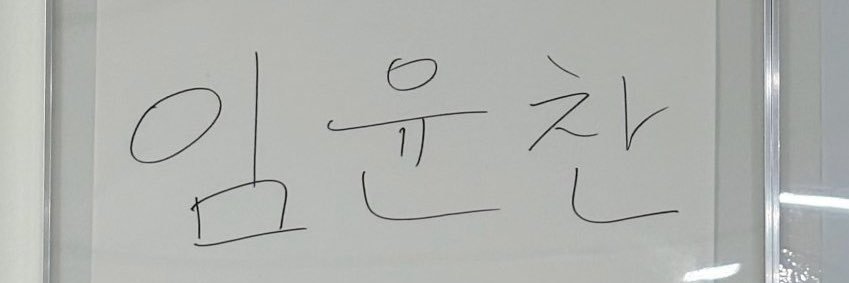 임윤찬